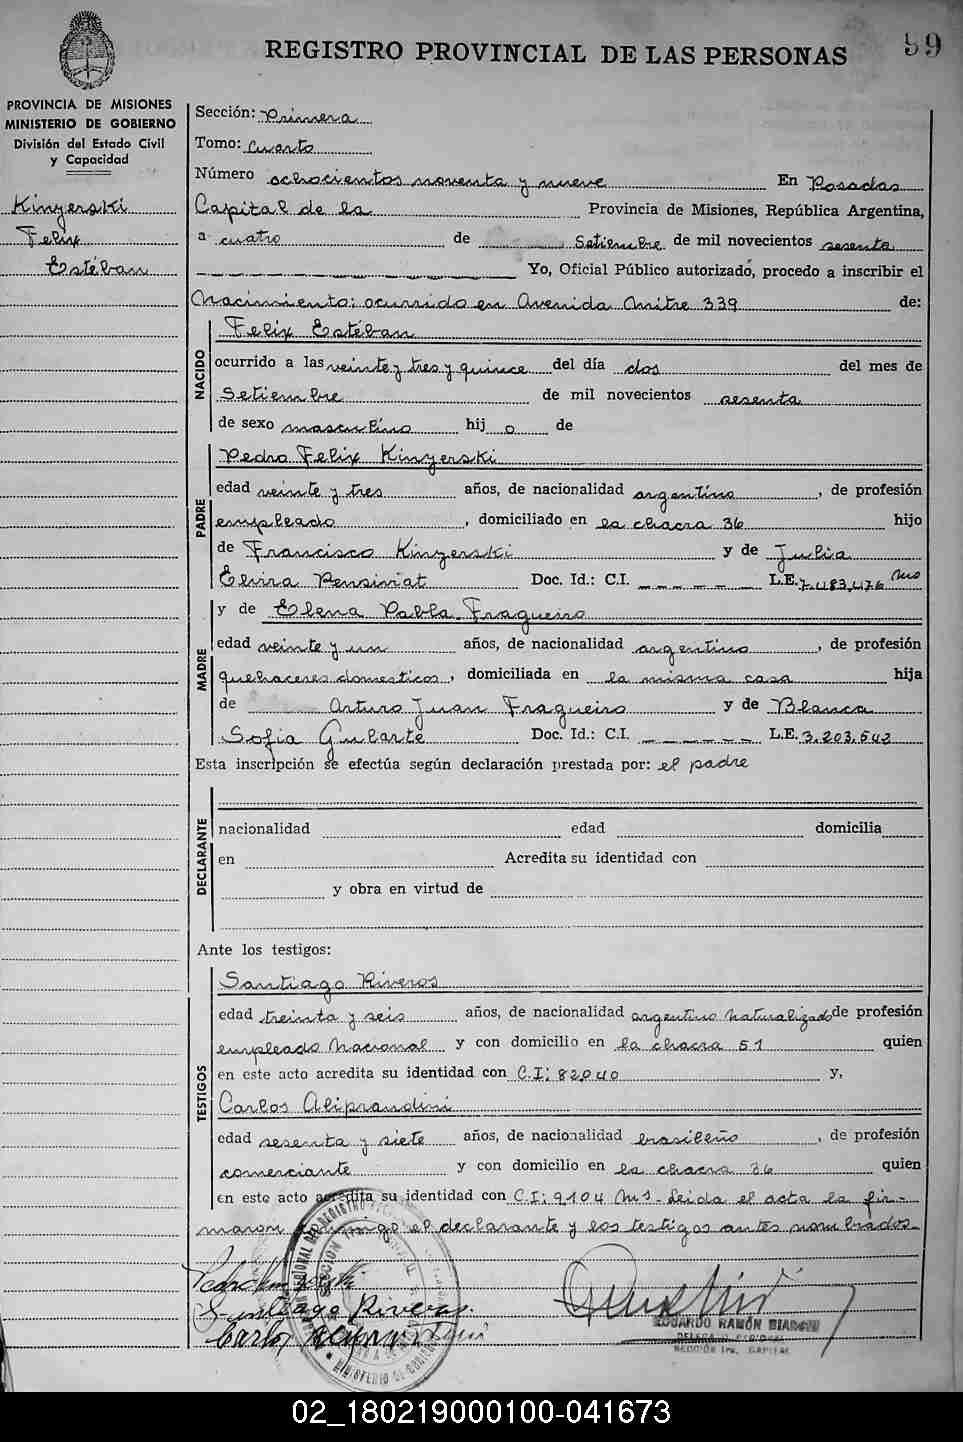 REGISTRO PROVINCIAL DE LAS PERSONAS
99
PROVINCIA DE MISIONES
MINISTERIO DE GOBIERNO
División del Estado Civil
y Capacidad
Kinyerski
Felix
Estéban
Sección: Primera
Tomo: Cuarto
Número ochocientos noventa y nueve En Posadas
Capital de la Provincia de Misiones, República Argentina,
a cuatro de Setiembre de mil novecientos sesenta
Yo, Oficial Público autorizado, procedo a inscribir el
Nacimiento: ocurrido en Avenida Mitre 339 de:
NACIDO
Felix Estéban
ocurrido a las veinte y tres y quince del día dos del mes de
Setiembre de mil novecientos sesenta
de sexo masculino hijo de
PADRE
Pedro Felix Kinyerski
edad veinte y tres años, de nacionalidad argentino, de profesión
empleado, domiciliado en la chacra 36 hijo
de Francisco Kinyerski y de Julia
Elvira Pensiviat Doc. Id.: C.I. L.E. 7.483.476 Mns
MADRE
y de Elena Pabla Fragueiro
edad veinte y un años, de nacionalidad argentino, de profesión
quehaceres domesticos, domiciliada en la misma casa hija
de Arturo Juan Fragueiro y de Blanca
Sofia Gularte Doc. Id.: C.I. L.E. 3.203.543
Esta inscripción se efectúa según declaración prestada por: el padre
DECLARANTE
nacionalidad edad domicilia
en Acredita su identidad con
y obra en virtud de
Ante los testigos:
TESTIGOS
Santiago Riveros
edad treinta y seis años, de nacionalidad argentino naturalizado de profesión
empleado Nacional y con domicilio en la chacra 51 quien
en este acto acredita su identidad con C.I: 82040 y,
Carlos Aliprandini
edad sesenta y siete años, de nacionalidad brasileño, de profesión
comerciante y con domicilio en la chacra 36 quien
en este acto acredita su identidad con C.I: 9104 Mns - Leida el acta la fir-
maron conmigo el declarante y los testigos antes nombrados.
Santiago Riveros.
Carlos Aliprandini
EDUARDO RAMÓN BIANCHI
DELEGADO REGIONAL
SECCIÓN 1ra. CAPITAL
02_180219000100-041673